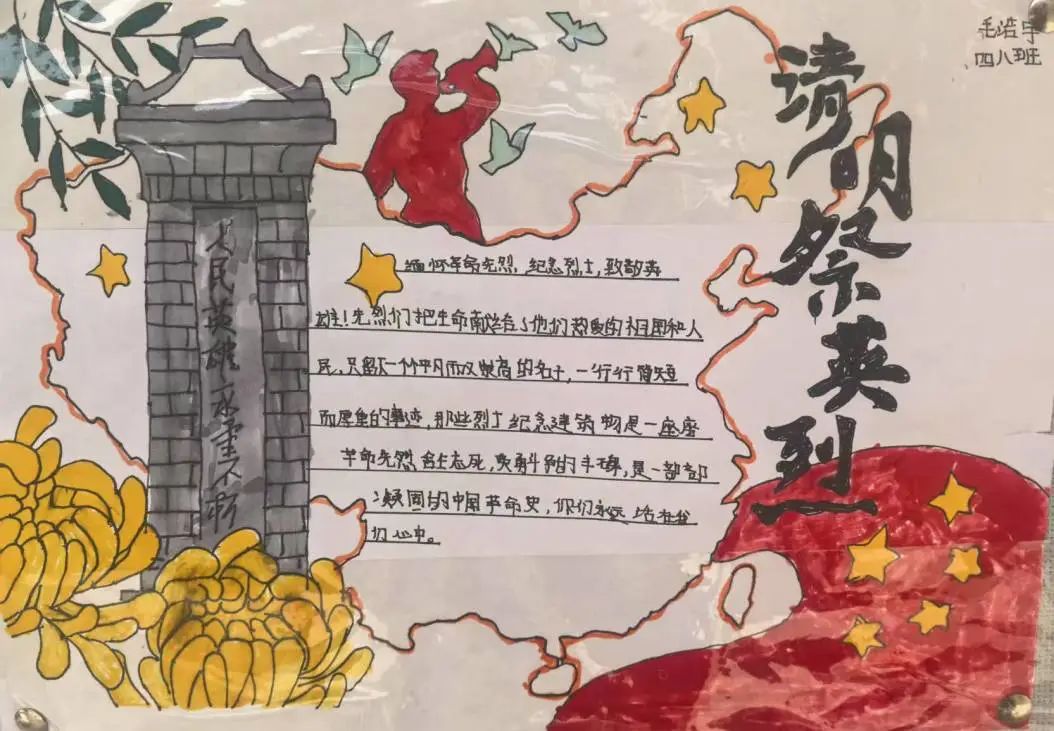 毛浩宇
四八班
清明祭英烈
人民英雄永垂不朽
缅怀革命先烈,纪念烈士,致敬英
雄!先烈们把生命献给了他们热爱的祖国和人
民,只留下一个平凡而又崇高的名字,一行行简短
而厚重的事迹,那些烈士纪念建筑物是一座座
革命先烈舍生忘死,英勇斗争的丰碑,是一部部
凝固的中国革命史,你们永远活在我
们心中。